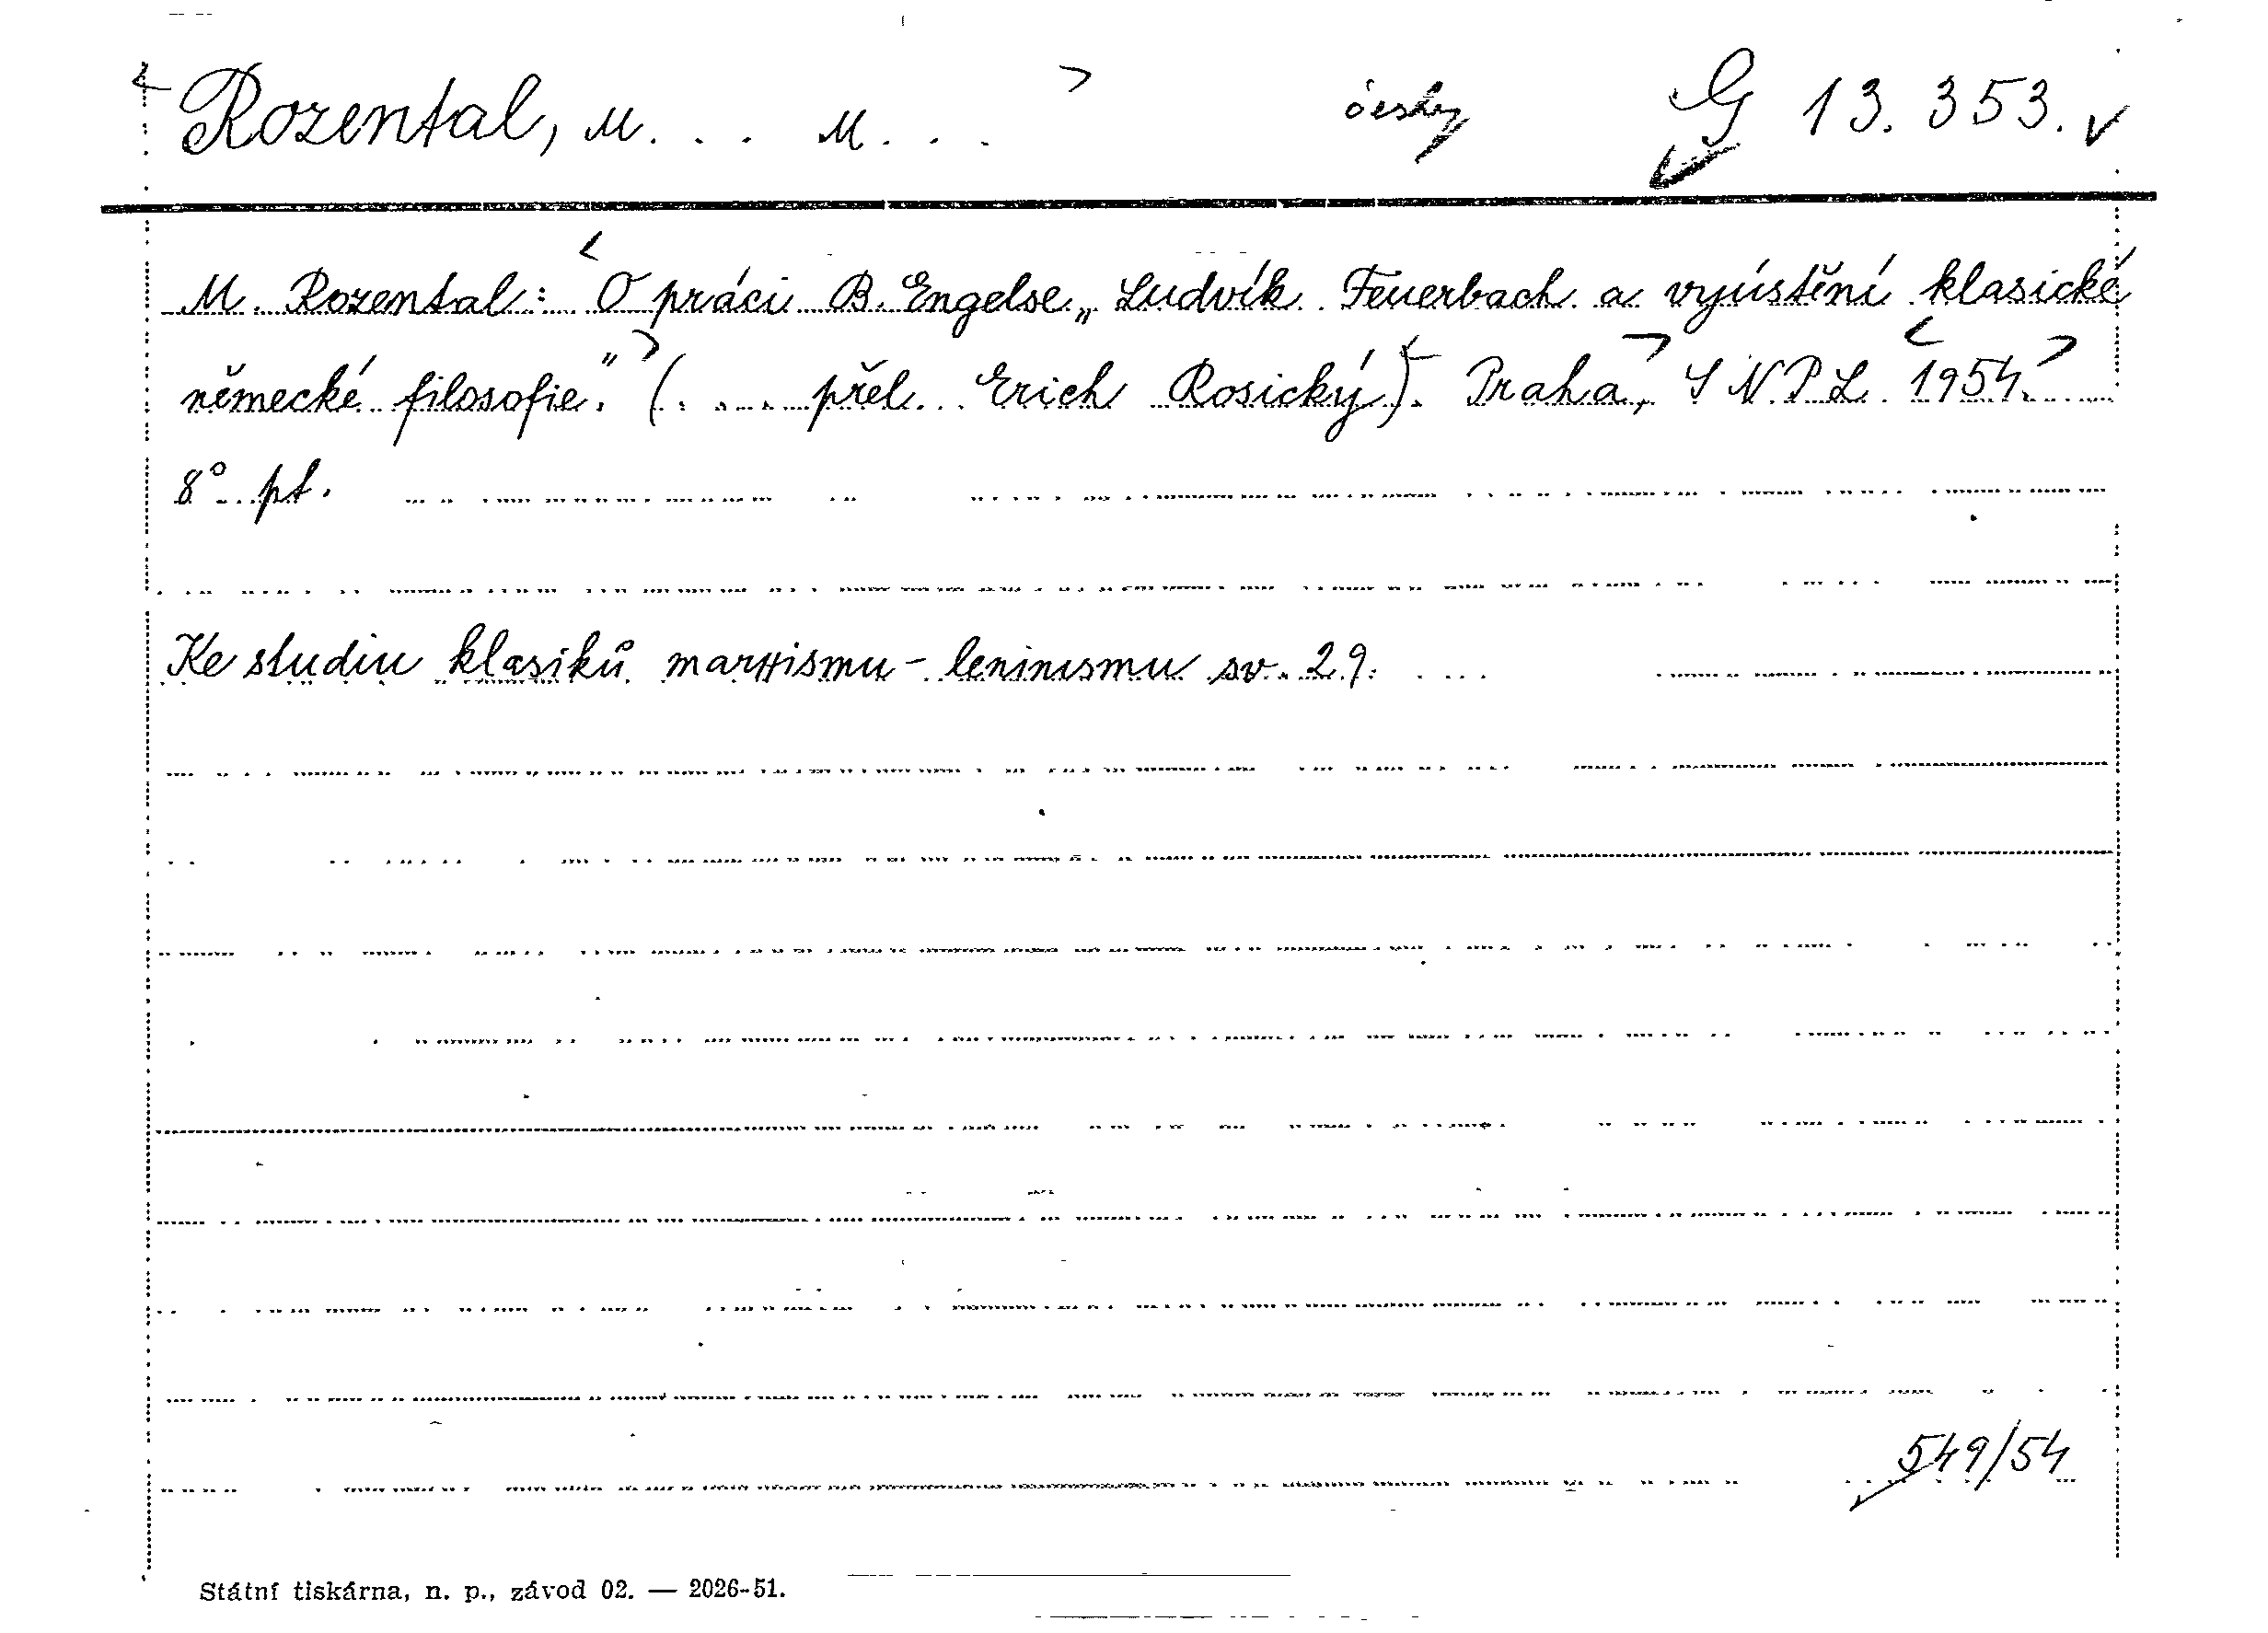 Rozental, M... M... česky G 13.353.
M. Rozental: O práci B. Engelse „Ludvík Feuerbach a vyústění klasické
německé filosofie." (.... přel. Erich Rosický). Praha, SNPL 1954.
8° pt.
Ke studiu klasiků marxismu-leninismu sv. 29.
549/54
Státní tiskárna, n. p., závod 02. — 2026-51.